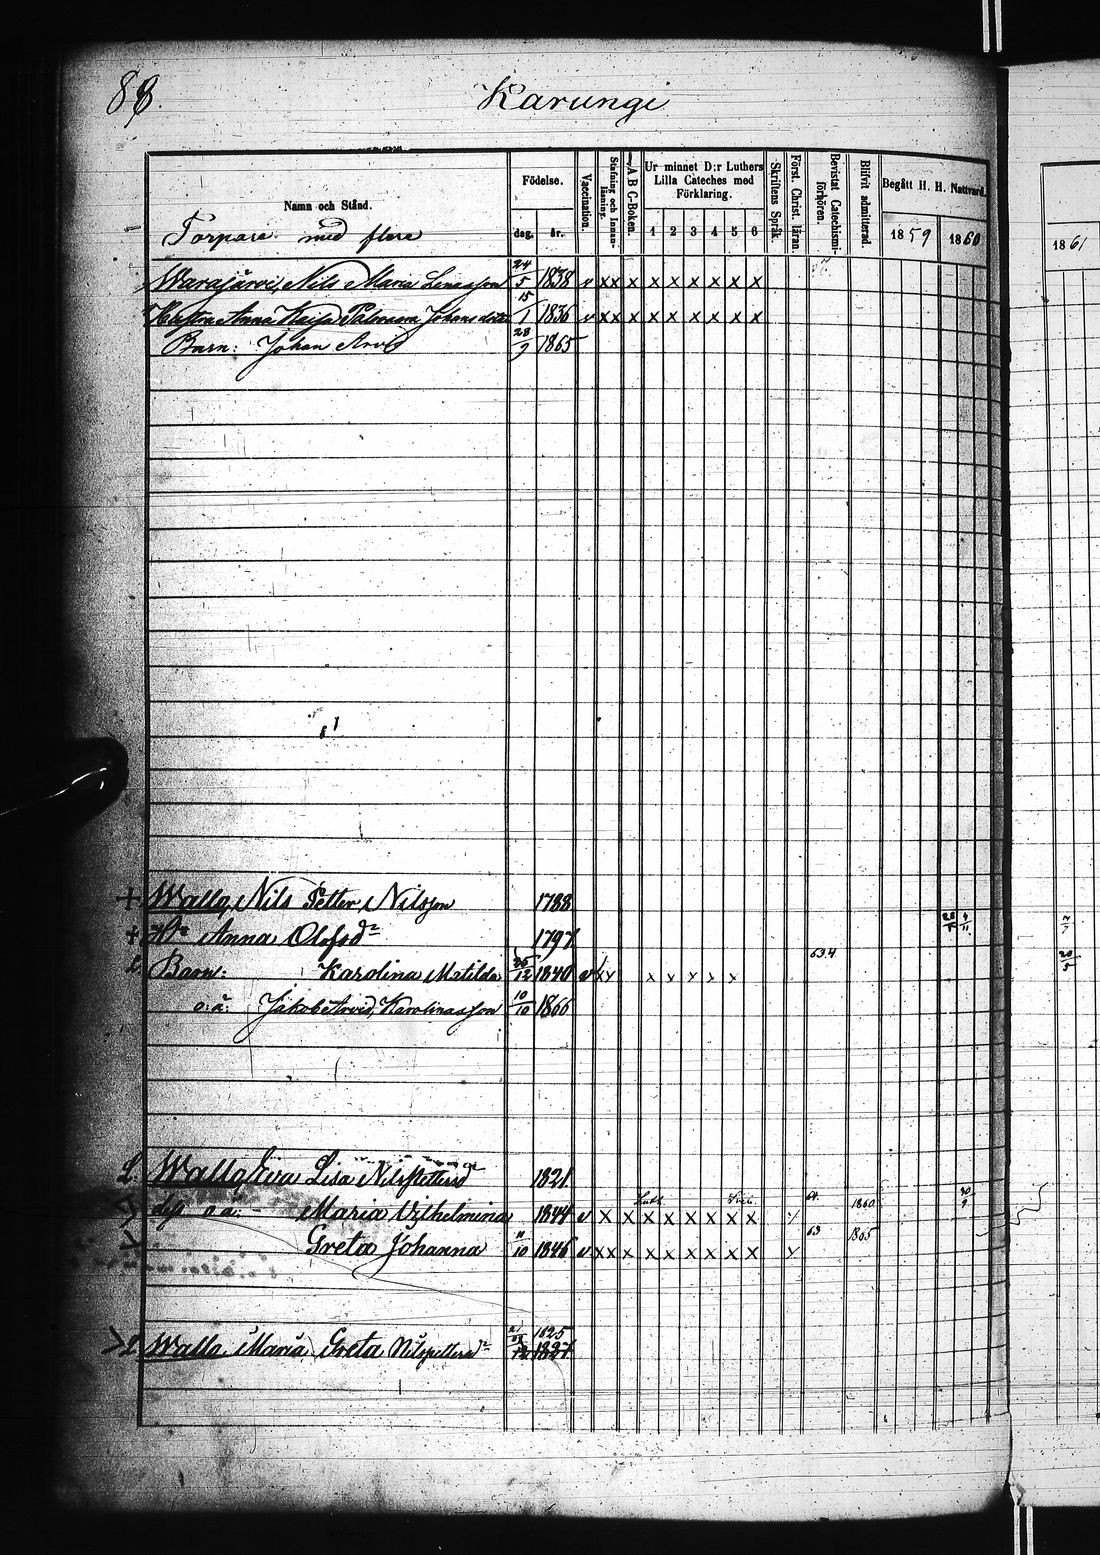 88.
Karungi
Namn och Stånd.
Torpare med flera
Födelse.
dag. år.
Vaccination.
Stafning och Innanläsning.
A B C-Boken.
Ur minnet D:r Luthers Lilla Cateches med Förklaring.
1 2 3 4 5 6
Skriftens Språk.
Först. Christ. läran.
Bevistat Catechismiförhören.
Blifvit admitterad.
Begått H. H. Nattvard.
1859 1860
1861
Warajärvi, Nils Maria Lenasson 24/5 1838 v x x x x x x x x x
Hustru Anna Kaisa Johansdotter 15/1 1836 v x x x x x x x x x
Barn: Johan Arvid 28/9 1865
+ Wallo, Nils Petter Nilsson 1788
+ H:u Anna Olofsd:r 1797
Barn: Karolina Matilda 26/12 1840 v x x x x x x x 634
o.ä. Jakob Arvid, Karolinasson 10/10 1866
L. Wallo Eva Lisa Nilspettersd:r 1821
dess o.ä. Maria Vilhelmina 1844 v x x x x x x x x 64 1860
Greta Johanna 11/10 1846 v x x x x x x x x x 63 1865
Wallo, Maria Greta Nilspettersd:r 1825 1827